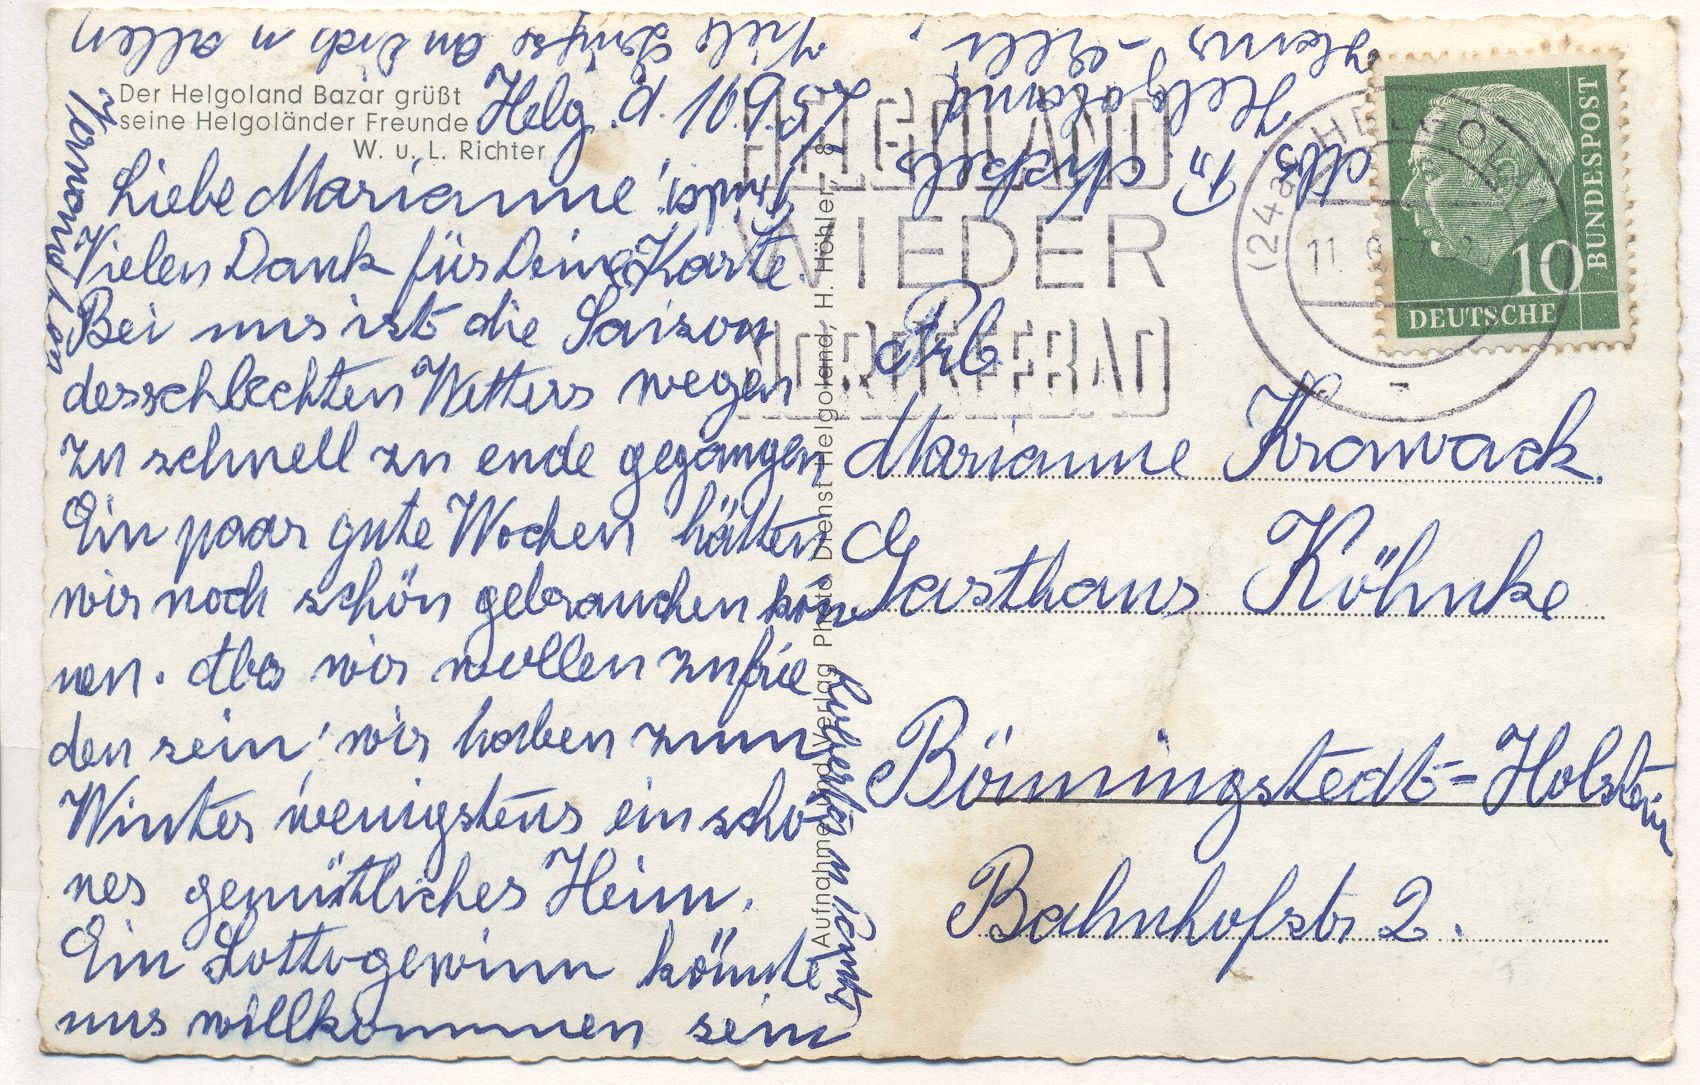 Der Helgoland Bazar grüßt
seine Helgoländer Freunde
W. u. L. Richter
Helg. d. 10.9.57
Liebe Marianne!
Vielen Dank für Deine Karte.
Bei uns ist die Saison
des schlechten Wetters wegen
zu schnell zu ende gegangen
Ein paar gute Wochen hätten
wir noch schön gebrauchen kön
nen. Aber wir wollen zufrie
den sein, wir haben zum
Winter wenigstens ein schö
nes gemütliches Heim.
Ein Lottogewinn könnte
uns willkommen sein
Viele Grüße an Dich u allen
Verwandten
Heins
Helgoland
Abs
Aufnahme und Verlag Photo Dienst Helgoland, H. Höhler, 8
HELGOLAND
WIEDER
NORDSEEBAD
(24a) HELGOLAND
11. 9. 57
DEUTSCHE
BUNDESPOST
10
Frl
Marianne Krawack.
Gasthaus Köhnke
Bönningstedt-Holstein
Bahnhofstr 2.